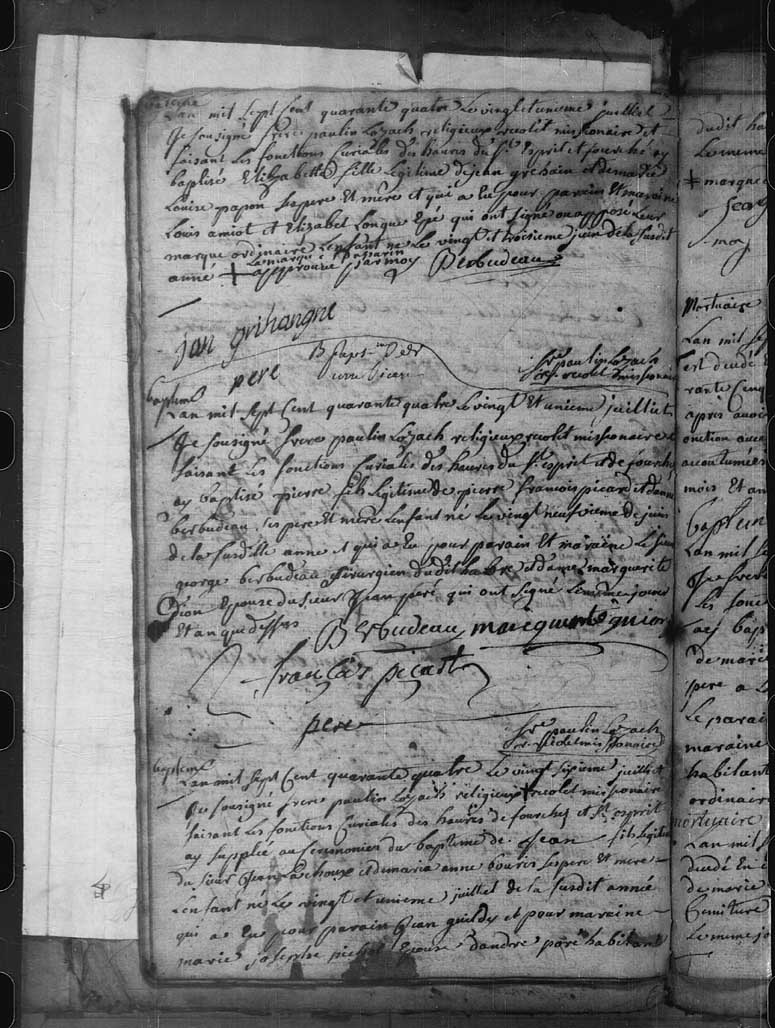 Lan mil sept sent quarante quatre Le vingt et unieme juillet
Je sousigné frere paulin Lozach religieux recolet missionaire et
faisant Les fonctions Curiales des havres du St. Esprit et fourché ay
baptisé Elizabette fille Legitime de jean grehain et de marie
Louise papon ses pere Et mere et qui a Eu pour parain Et maraine
Louis amiot et Elizabet Longue Epé qui ont signé ou apposé Leur
marque ordinaire Lenfant né Le vingt et troisieme juin de la susdit
La marque parain
anne + approuve par moy Berbudeau
jan grihangne
pere
fre. paulin Lozach
rel. recolet missionaire
bapteme
Lan mil sept Cent quarante quatre Le vingt Et unieme juillet
Je sousigné frere paulin Lozach religieux recolet missionaire et
faisant Les fonctions Curiales des havres du St. esprit et de fourché
ay baptisé pierre fils Legitime de pierre francois picard et danne
berbudeau ses pere Et mere Lenfant né Le vingt neufvieme de juin
de la susditte anne et qui a Eu pour parain Et maraine Le sieur
george berbudeau chirurgien dudit habre et dame marguerite
dion Epouse du sieur Jean peré qui ont signé Le meme jour
Et an que dessus
Berbudeau marguerite guion
francois picart
pere
fre. paulin Lozach
rel. recolet missionaire
bapteme
Lan mil sept Cent quarante quatre Le vingt sixieme juillet
Je sousigné frere paulin Lozach religieux recolet missionaire
faisant Les fonctions Curiales des havres de fourché et St. esprit
ay supplié au Ceremonies du baptesme de Jean fils Legitime
du sieur Jean Lachoux et de maria anne bouris ses pere Et mere
Lenfant né Le vingt et unieme juillet de la susdit année
qui a Eu pour parain Jean guildy et pour maraine
marie josephe pichot Epouse dandre paré habitant
dudit ha
Le meme
+ marque
Mortuaire
Lan mil se
est decedé
rante Cinq
apres avoir
onction
acoutumées
mois Et an
baptem
Lan mil se
Je frere
Les fonc
ay bap
de mari
pere a
Le parai
maraine
habitant
ordinaire
mortuaire
Lan mil s
decedé
de marie
Cemiture
Le meme jo